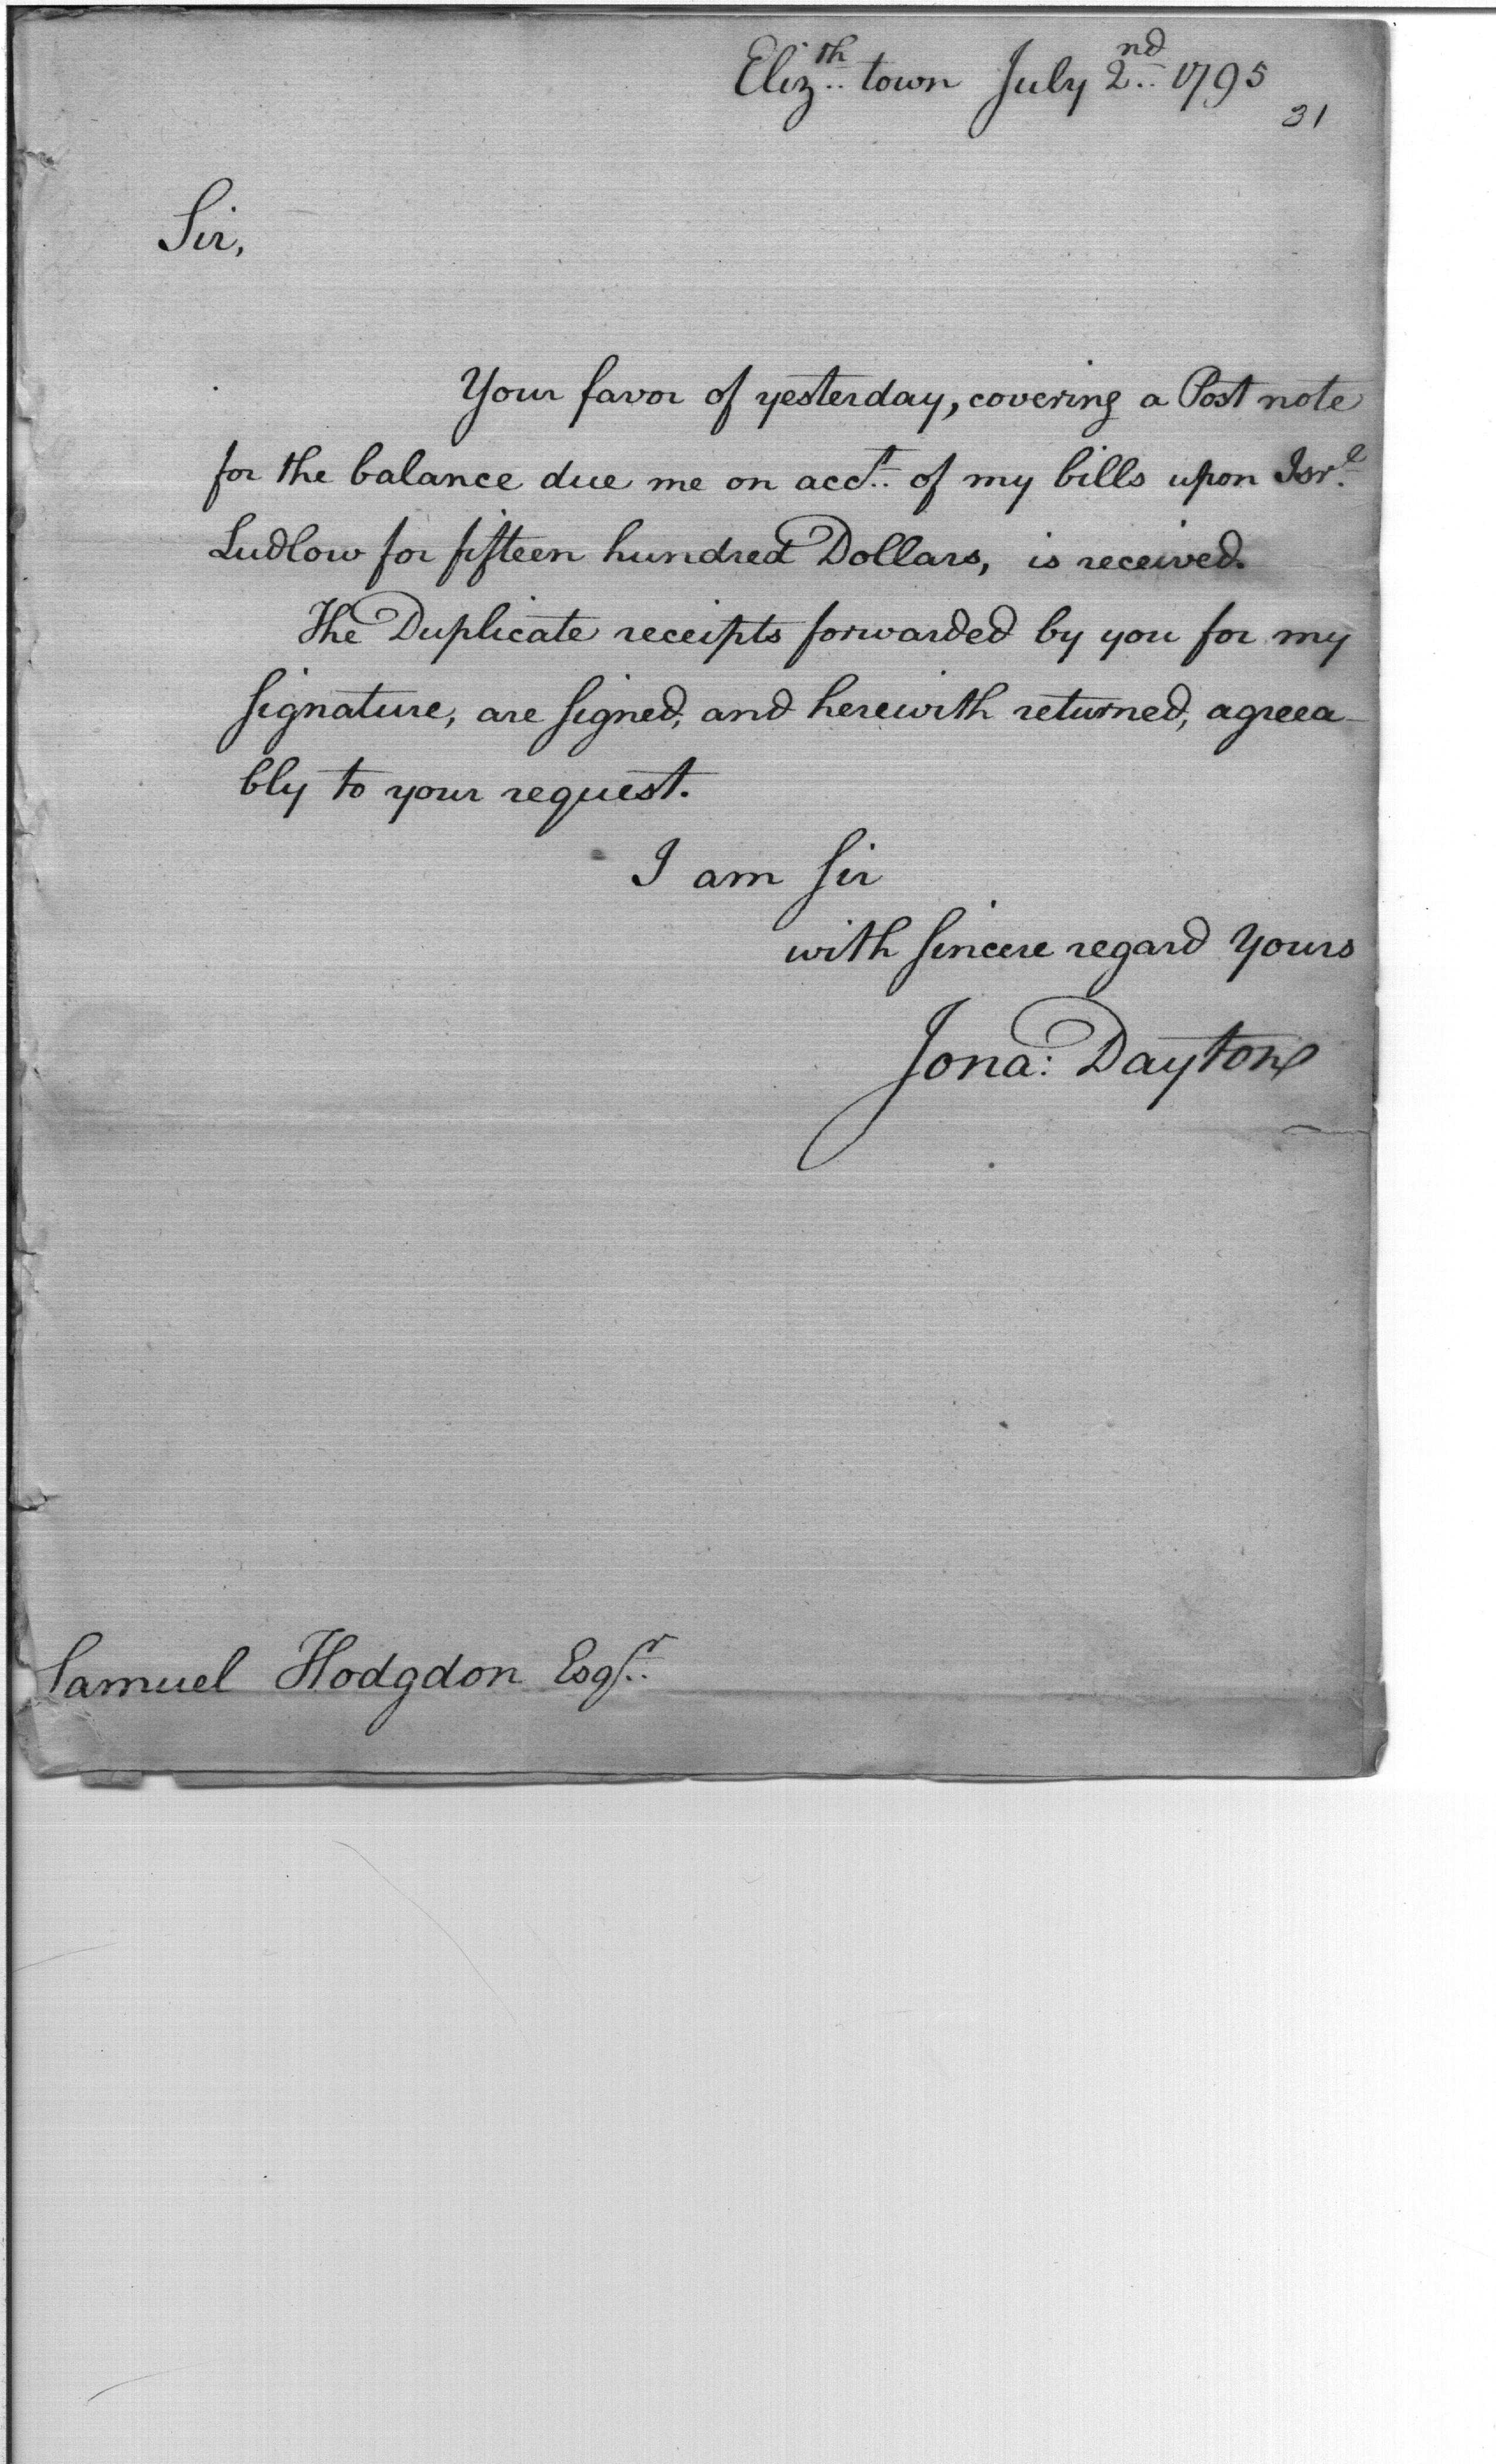 Eliz.th town July 2.nd 1795
31
Sir,
Your favor of yesterday, covering a Post note
for the balance due me on acct. of my bills upon Isr.l
Ludlow for fifteen hundred Dollars, is received.
The Duplicate receipts forwarded by you for my
signature, are signed, and herewith returned, agreea-
bly to your request.
I am Sir
with sincere regard Yours
Jona: Dayton
Samuel Hodgdon Esqr.